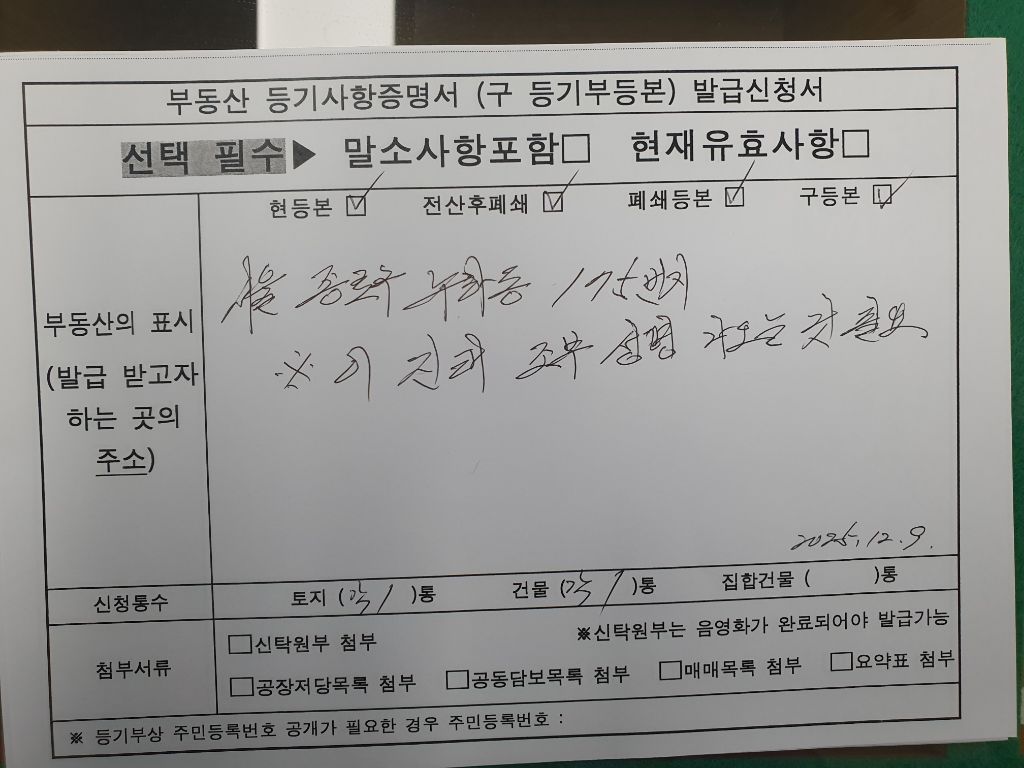 부동산 등기사항증명서 (구 등기부등본) 발급신청서
선택 필수▶ 말소사항포함□ 현재유효사항□
현등본 ☑ 전산후폐쇄 ☑ 폐쇄등본 ☑ 구등본 ☑
부동산의 표시
(발급 받고자
하는 곳의
주소)
서울 종로구 누하동 175번지
※ 이 진태 조부 성명 나오는 것 필요
2025.12.9.
신청통수 토지 (각 1)통 건물 (각 1)통 집합건물 ( )통
첨부서류
□신탁원부 첨부 ※신탁원부는 음영화가 완료되어야 발급가능
□공장저당목록 첨부 □공동담보목록 첨부 □매매목록 첨부 □요약표 첨부
※ 등기부상 주민등록번호 공개가 필요한 경우 주민등록번호 :